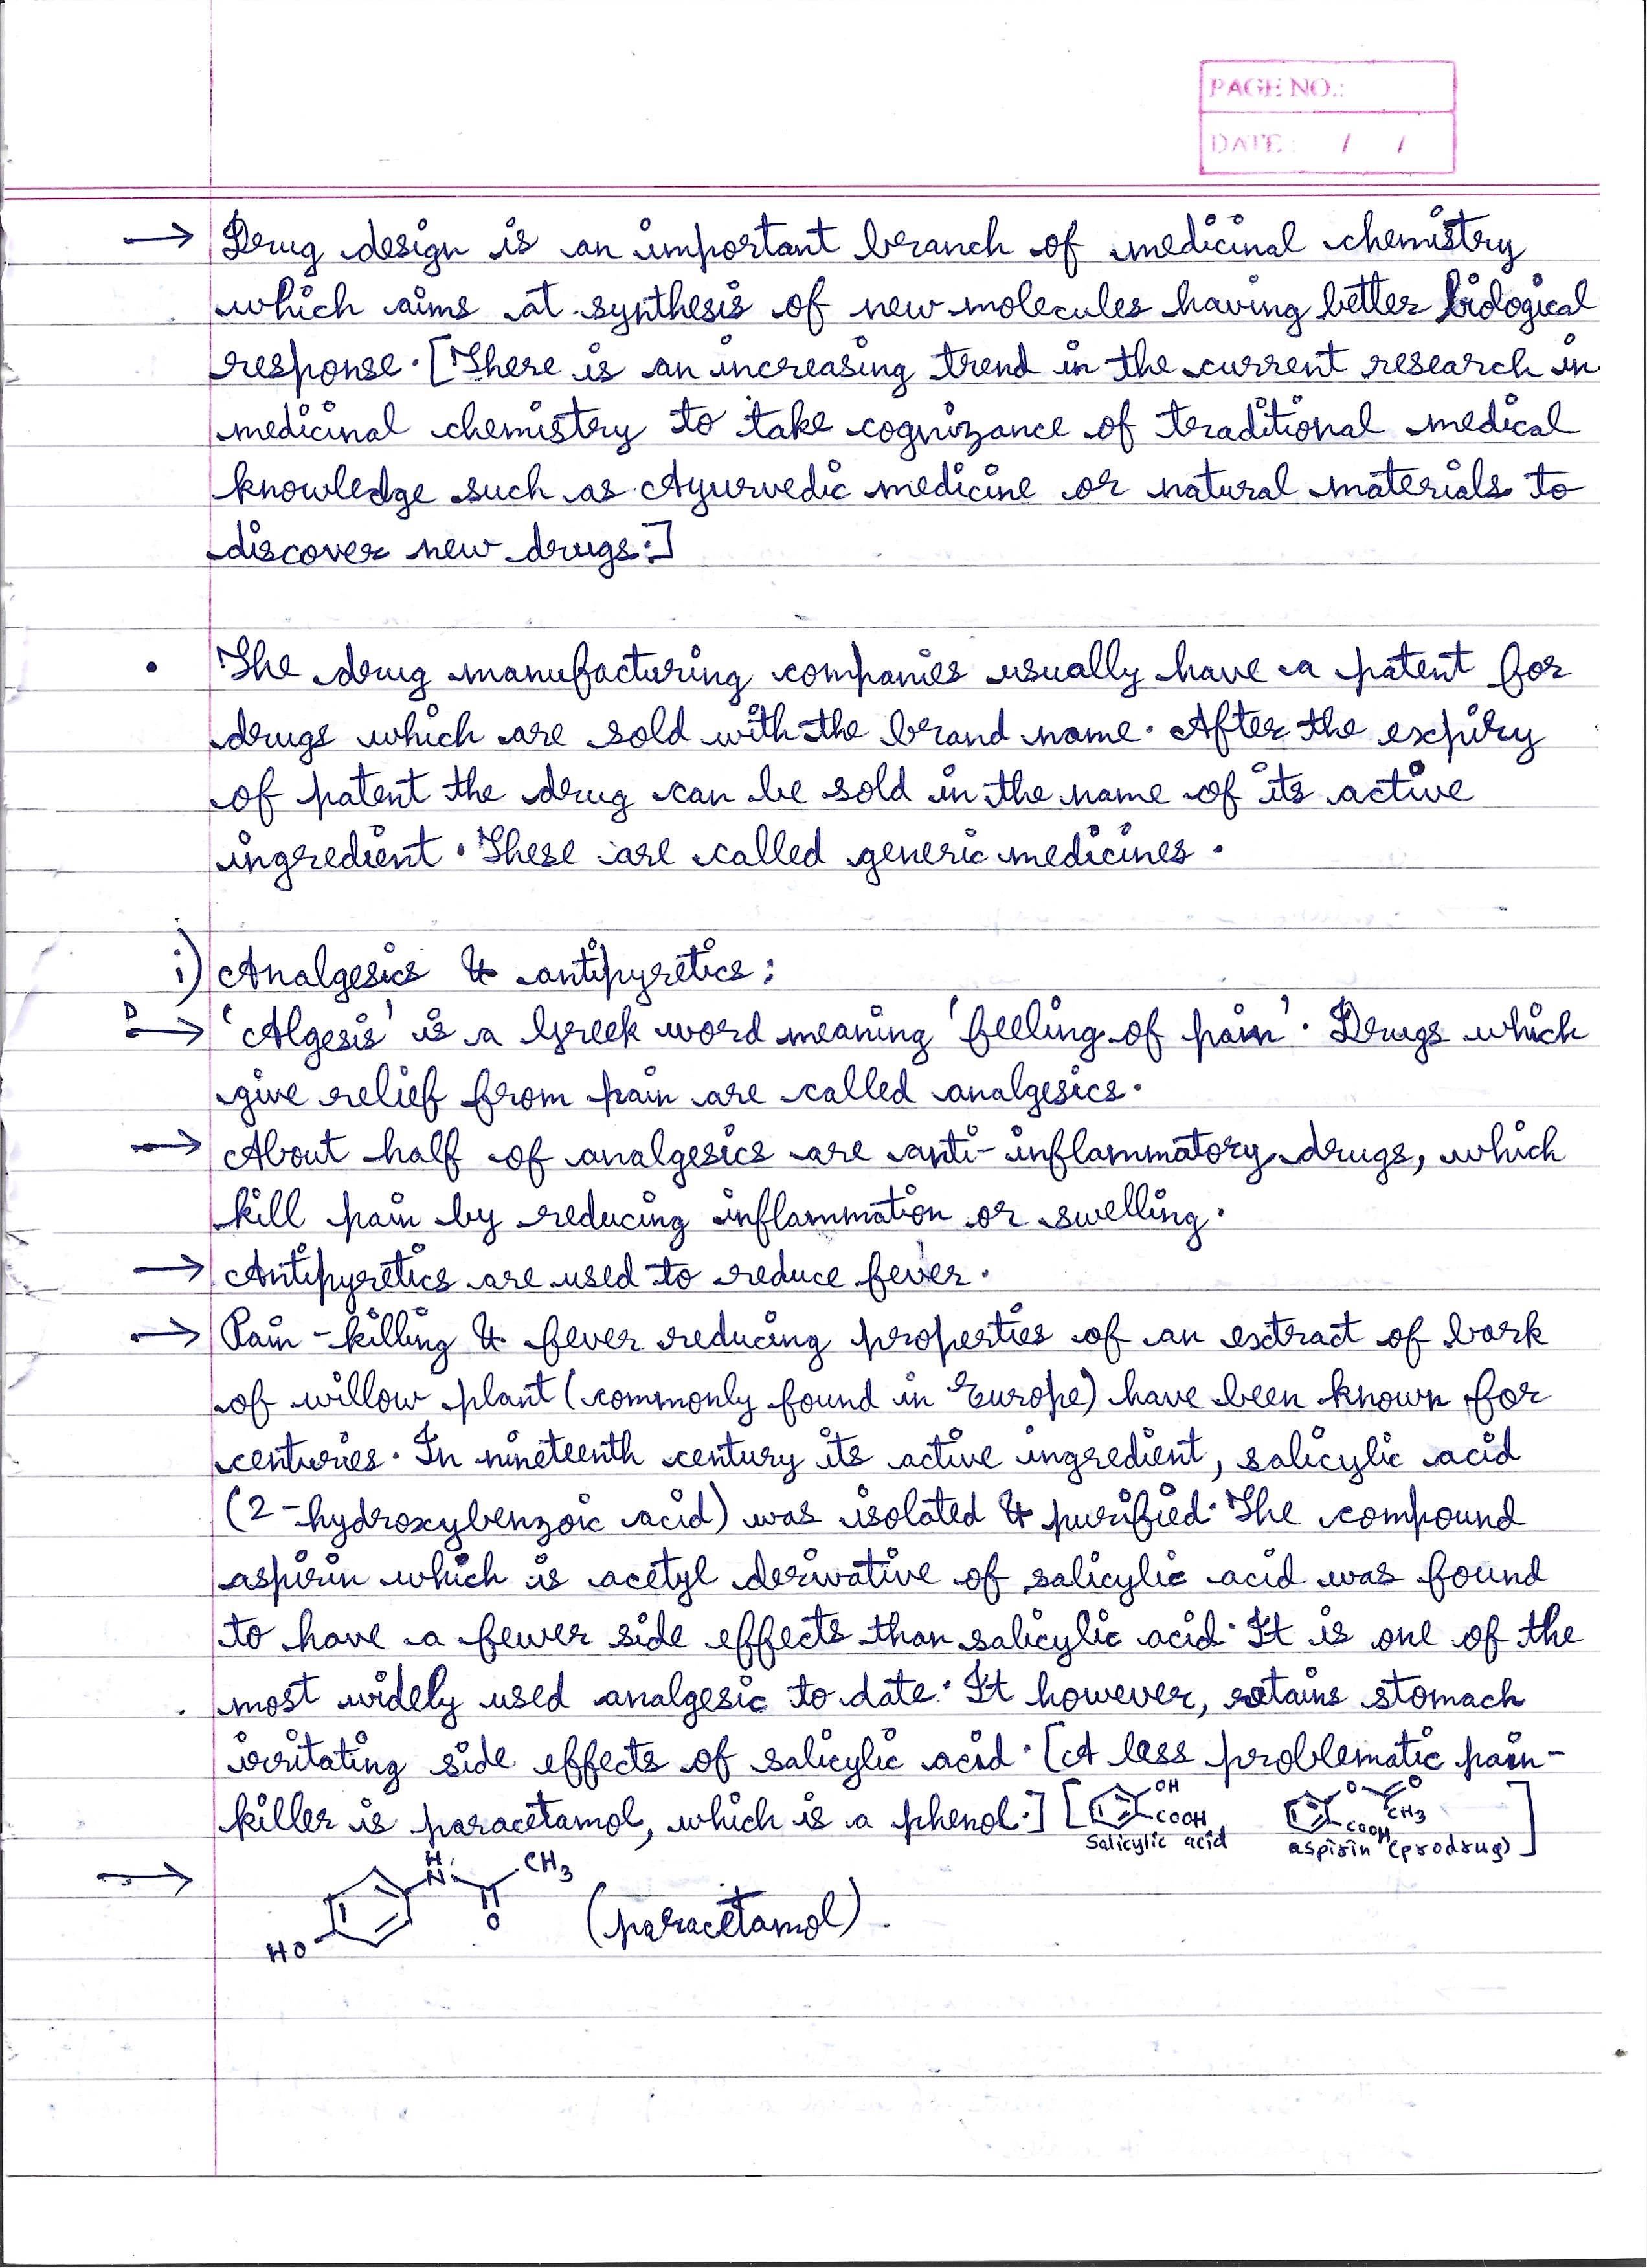 PAGE NO.:
DATE: / /
→ Drug design is an important branch of medicinal chemistry
which aims at synthesis of new molecules having better biological
response. [There is an increasing trend in the current research in
medicinal chemistry to take cognizance of traditional medical
knowledge such as Ayurvedic medicine or natural materials to
discover new drugs.]
• The drug manufacturing companies usually have a patent for
drugs which are sold with the brand name. After the expiry
of patent the drug can be sold in the name of its active
ingredient. These are called generic medicines.
i) Analgesics & antipyretics:
→ 'Algesis' is a Greek word meaning 'feeling of pain'. Drugs which
give relief from pain are called analgesics.
→ About half of analgesics are anti-inflammatory drugs, which
kill pain by reducing inflammation or swelling.
→ Antipyretics are used to reduce fever.
→ Pain-killing & fever reducing properties of an extract of bark
of willow plant (commonly found in Europe) have been known for
centuries. In nineteenth century its active ingredient, salicylic acid
(2-hydroxybenzoic acid) was isolated & purified. The compound
aspirin which is acetyl derivative of salicylic acid was found
to have a fewer side effects than salicylic acid. It is one of the
most widely used analgesic to date. It however, retains stomach
irritating side effects of salicylic acid. [A less problematic pain-
killer is paracetamol, which is a phenol.] [OH COOH O O CH3 COOH]
Salicylic acid aspirin (prodrug)
→ H N CH3 O HO (paracetamol).